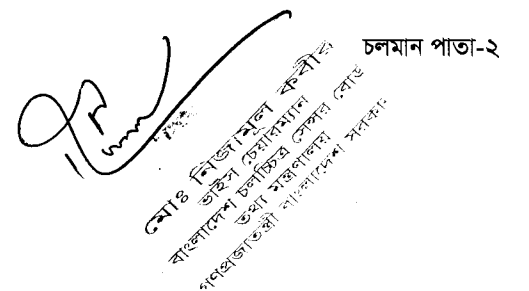 চলমান পাতা-২
মোঃ নিজামুল কবীর
ভাইস চেয়ারম্যান
বাংলাদেশ চলচ্চিত্র সেন্সর বোর্ড
তথ্য মন্ত্রণালয়
গণপ্রজাতন্ত্রী বাংলাদেশ সরকার